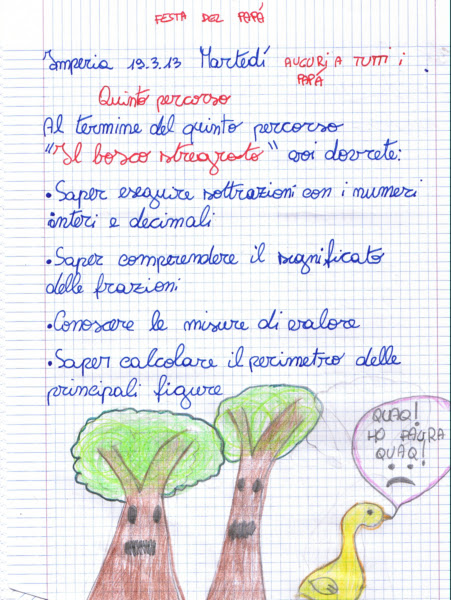 FESTA DEL PAPÁ
Imperia 19.3.13 Martedí AUGURI A TUTTI i
PAPÁ
Quinto percorso
Al termine del quinto percorso
"Il bosco stregato" voi dovrete:
•Saper eseguire sottrazioni con i numeri
interi e decimali
•Saper comperendere il significato
delle frazioni
•Conoscere le misure di valore
•Saper calcolare il perimetro delle
principali figure
QUAQ!
HO PAURA
QUAQ!